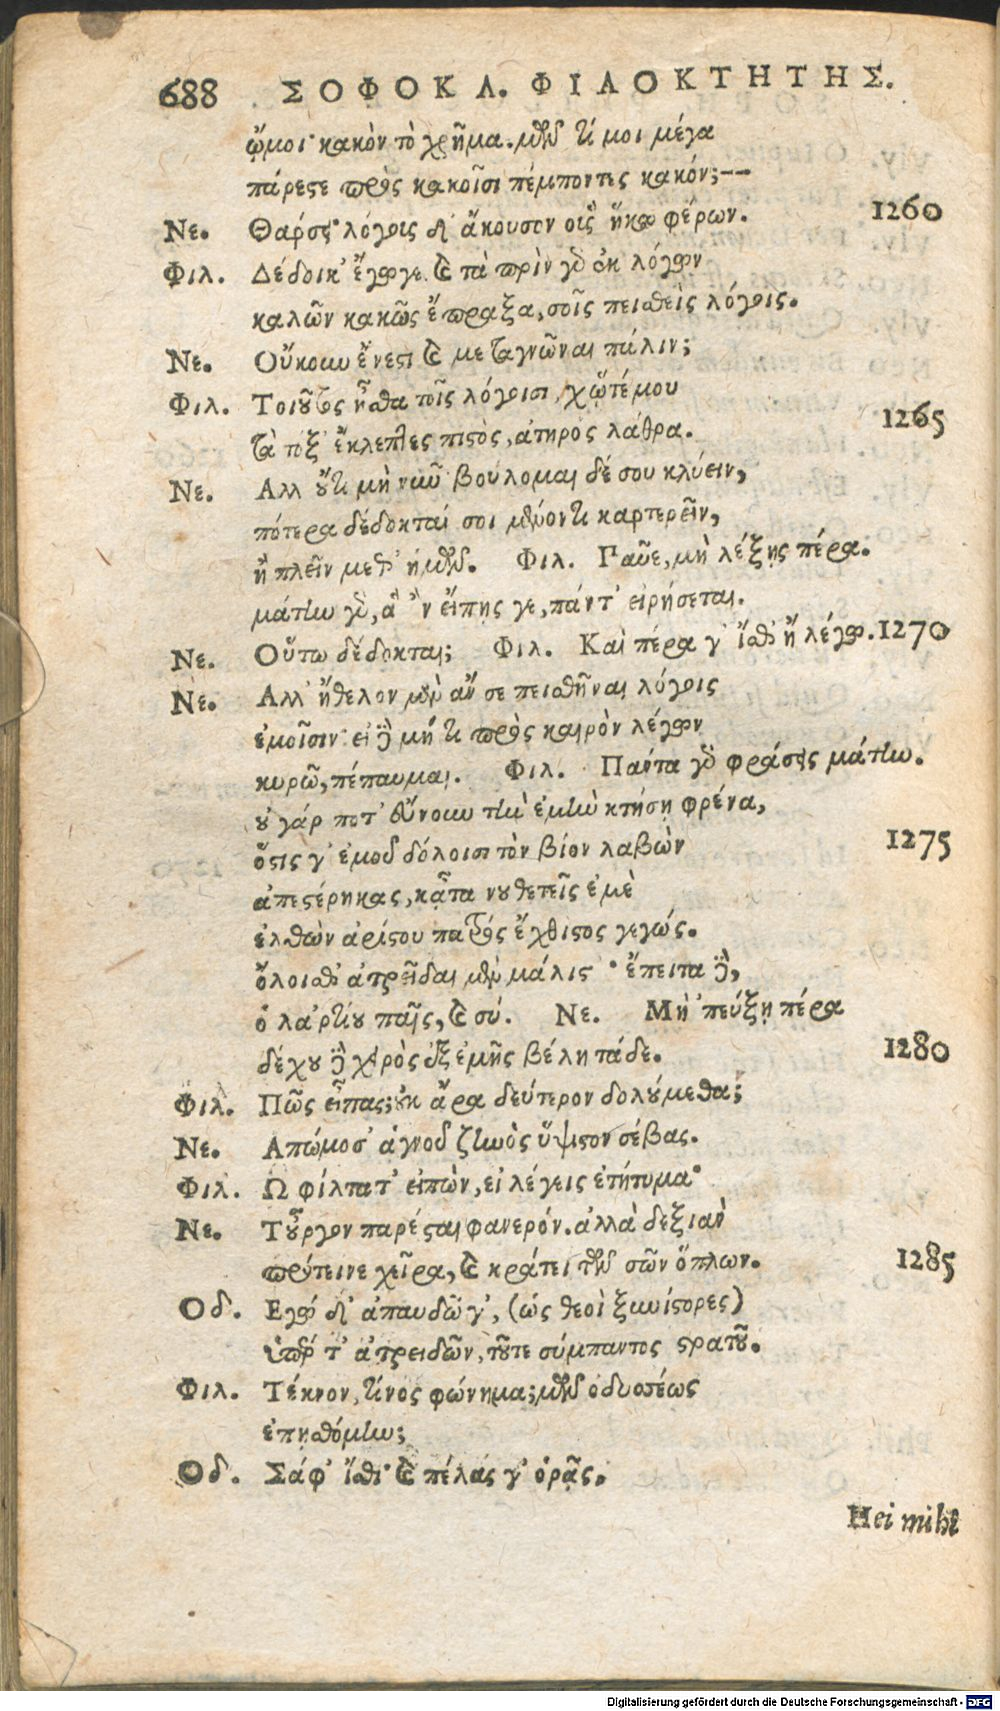 688 ΣΟΦΟΚΛ. ΦΙΛΟΚΤΗΤΗΣ.
ᾤμοι· κακὸν τὸ χρῆμα. μῶν τί μοι μέγα
πάρεστε πρὸς κακοῖσι πέμποντες κακόν;--
Νε. Θάρσει· λόγοις δ' ἄκουσον οἷς ἥκω φέρων. 1260
Φιλ. Δέδοικ' ἔγωγε. καὶ τὰ πρὶν γὰρ ἐκ λόγων
καλῶν κακῶς ἔπραξα, σοῖς πεισθεὶς λόγοις.
Νε. Οὔκουν ἔνεστι καὶ μεταγνῶναι πάλιν;
Φιλ. Τοιοῦτος ἦσθα τοῖς λόγοισι, χᾥτέ μου
τὰ τόξ' ἔκλεπτες πιστὸς, ἀτηρὸς λάθρα. 1265
Νε. Αλλ' οὔτι μὴ νῦν βούλομαι δέ σου κλύειν,
πότερα δέδοκταί σοι μένοντι καρτερεῖν,
ἢ πλεῖν μεθ' ἡμῶν. Φιλ. Παῦε, μὴ λέξῃς πέρα.
μάτην γὰρ, ἃ ἂν εἴπῃς γε, πάντ' εἰρήσεται.
Νε. Οὕτω δέδοκται; Φιλ. Καὶ πέρα γ' ἴσθ' ἢ λέγω. 1270
Νε. Αλλ' ἤθελον μὲν ἄν σε πεισθῆναι λόγοις
ἐμοῖσιν· εἰ δὲ μή τι πρὸς καιρὸν λέγων
κυρῶ, πέπαυμαι. Φιλ. Πάντα γὰρ φράσεις μάτην.
οὐ γάρ ποτ' εὔνουν τὴν ἐμὴν κτήσῃ φρένα,
ὅστις γ' ἐμοῦ δόλοισι τὸν βίον λαβὼν 1275
ἀπεστέρηκας, κᾆτα νουθετεῖς ἐμὲ
ἐλθὼν ἀρίστου πατρὸς ἔχθιστος γεγώς.
ὄλοισθ' ἀτρεῖδαι μὲν μάλιστ'· ἔπειτα δὲ,
ὁ λαρτίου παῖς, καὶ σύ. Νε. Μὴ 'πεύξῃ πέρα
δέχου δὲ χειρὸς ἐξ ἐμῆς βέλη τάδε. 1280
Φιλ. Πῶς εἶπας; οὐκ ἄρα δεύτερον δολούμεθα;
Νε. Απώμοσ' ἁγνοῦ ζηνὸς ὕψιστον σέβας.
Φιλ. Ω φίλτατ' εἰπὼν, εἰ λέγεις ἐτήτυμα·
Νε. Τοὖργον παρέσται φανερόν. ἀλλὰ δεξιὰν
πρότεινε χεῖρα, καὶ κράτει τῶν σῶν ὅπλων. 1285
Οδ. Εγὼ δ' ἀπαυδῶ γ', (ὡς θεοὶ ξυνίστορες)
ὑπέρ τ' ἀτρειδῶν, τοῦτε σύμπαντος στρατοῦ.
Φιλ. Τέκνον, τίνος φώνημα; μῶν ὀδυσσέως
ἐπῃσθόμην;
Οδ. Σάφ' ἴσθι· καὶ πέλας γ' ὁρᾷς.
Hei mihi
Digitalisierung gefördert durch die Deutsche Forschungsgemeinschaft - DFG